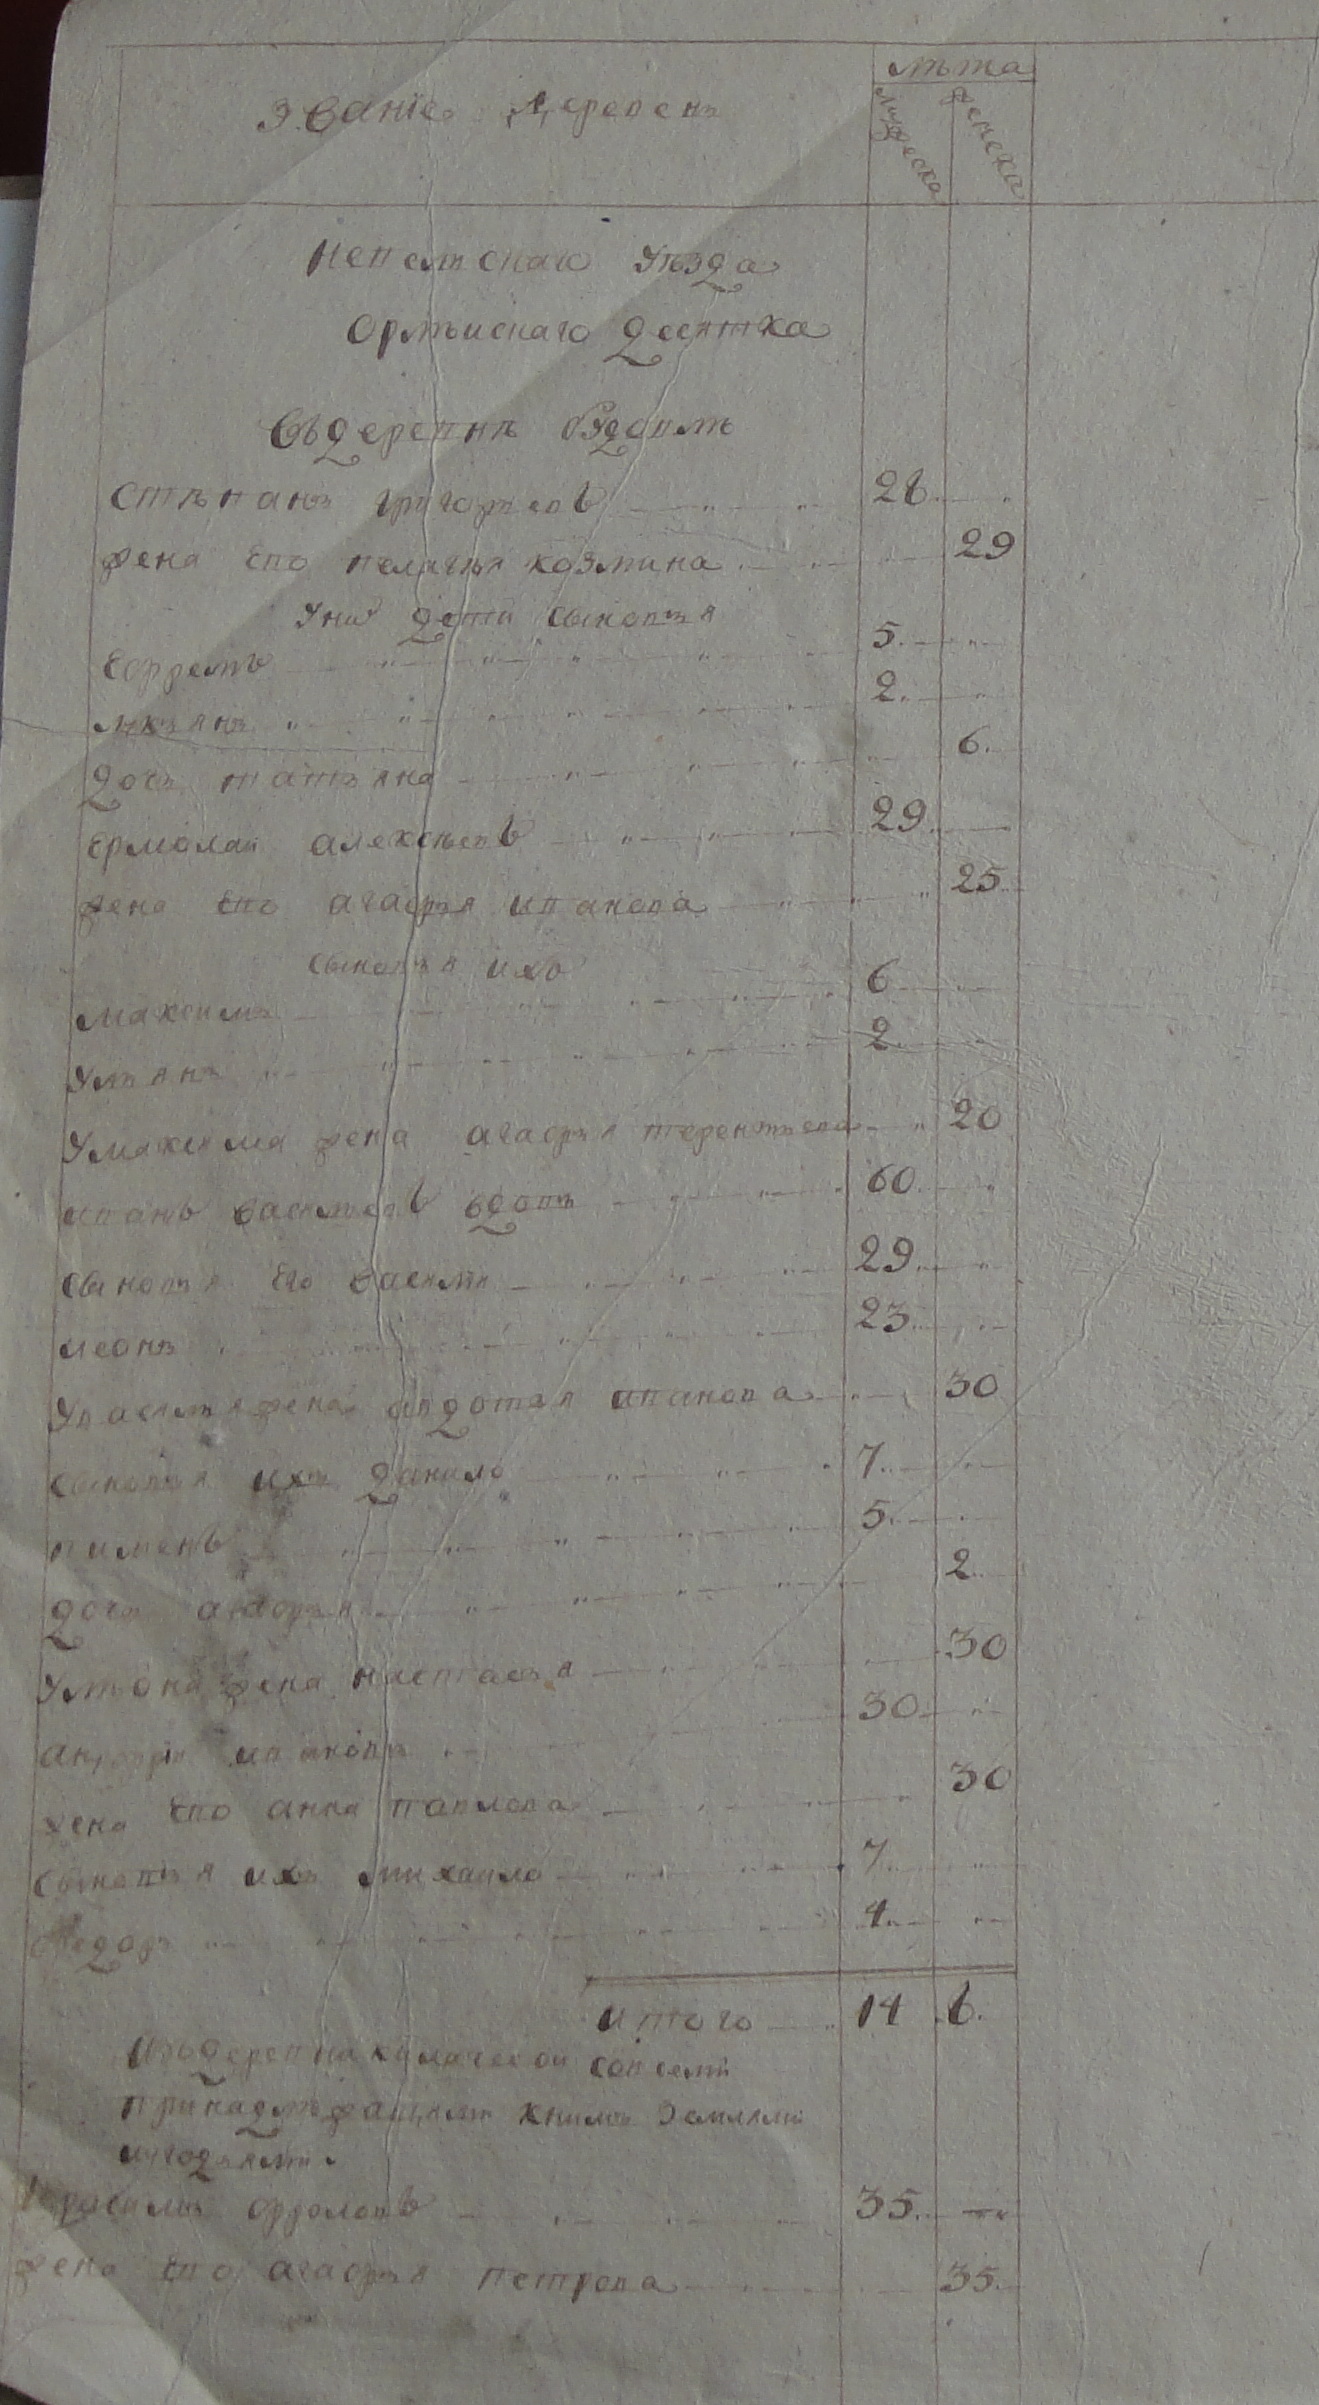 лѣта
Званіе деревень
мужеска
женска
Непелскаго уѣзда
десятка
Въдеревнѣ
Стѣпанъ григорьевъ 28
жена ево пелагѣя козмина 29
Уних дети сыновья
Ефремъ 5
лукьянъ 2
дочь татьяна 6
Ермолаи алексѣевъ 29
жена ево агафья иванова 25
сыновья ихъ
максимъ 6
Ульянъ 2
Умаксима жена агафья терентьева 20
иванъ васильевъ вдовъ 60
сыновья Его василеи 29
леонъ 23
Увасилья жена авдотья иванова 30
сыновья ихъ данило 7
пименъ 5
дочь афья 2
Улеона жена настасья 30
андреи ивановъ 30
жена ево анна павлова 30
сыновья ихъ михаило 7
Федоръ 4
итого 14 8
Издеревни совсеми
принадлежащими книмъ землями
иугодьями
фроловъ 35
жена ево агафья петрова 35